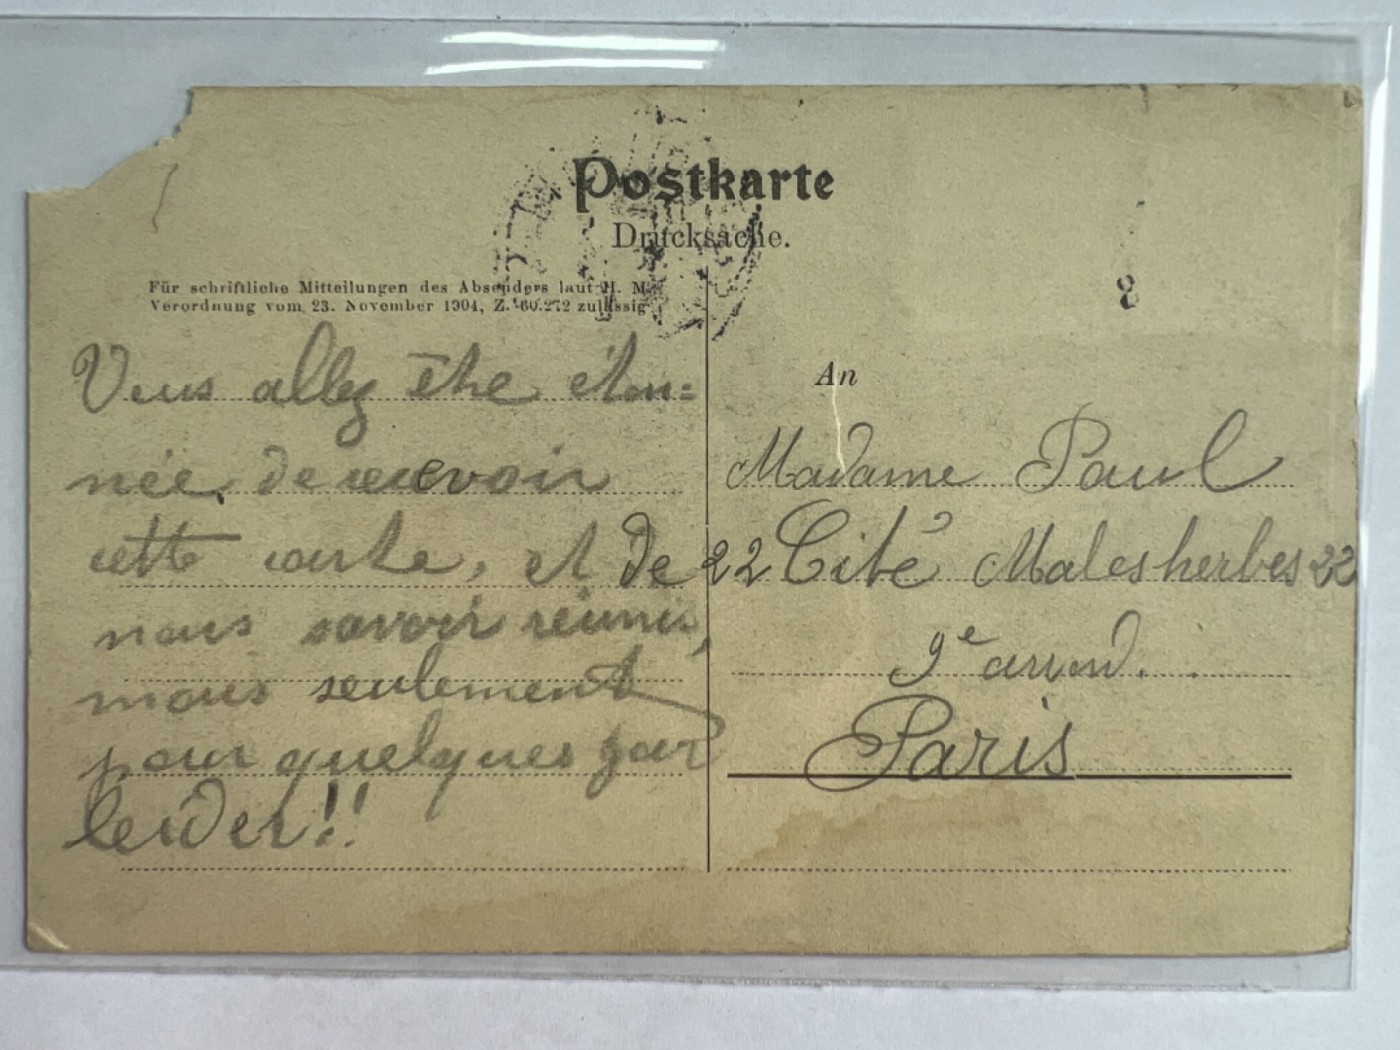 Postkarte
Drucksache.
Für schriftliche Mitteilungen des Absenders laut H. M.
Verordnung vom 23. November 1904, Z. 60.272 zulässig
8
Vous allez être éton=
née de recevoir
cette carte, et de
nous savoir réunis,
mais seulement
pour quelques jours
leider!!
An
Madame Paul
22 Cité Malesherbes 22
9e arrond.
Paris